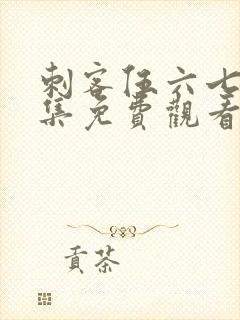 刺客伍六七
集免費觀看
貢茶